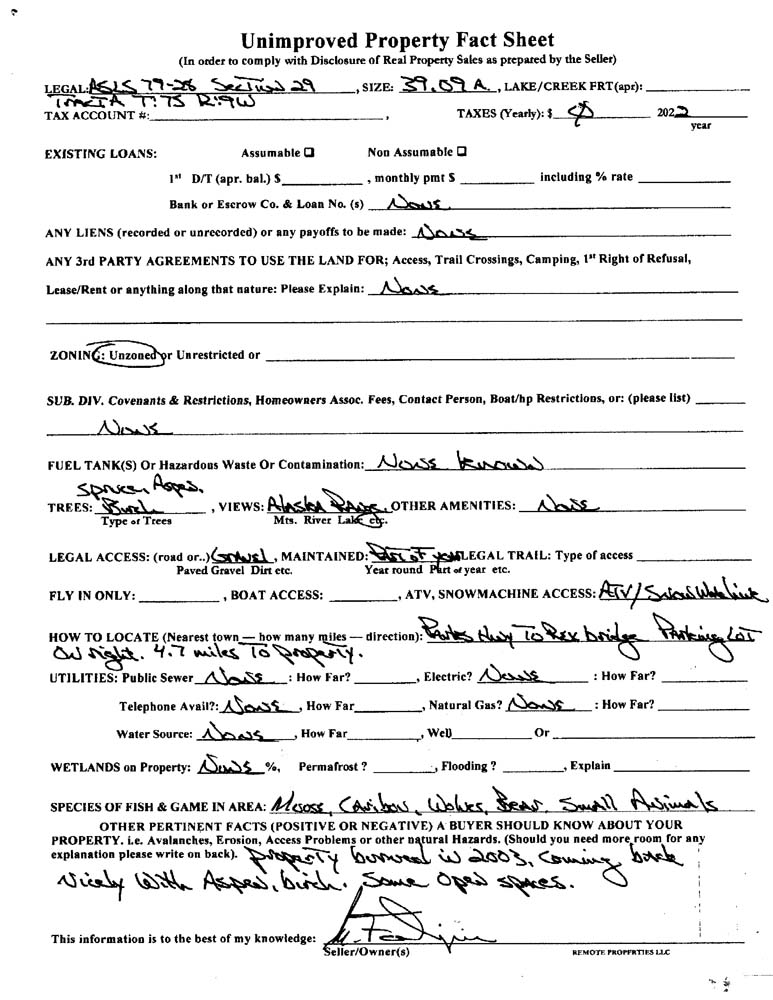 Unimproved Property Fact Sheet
(In order to comply with Disclosure of Real Property Sales as prepared by the Seller)
LEGAL: ASLS 79-28 Section 29, SIZE: 39.09 A., LAKE/CREEK FRT(apr):
Tract A T:7S R:9W
TAX ACCOUNT #: , TAXES (Yearly): $ 2022
year
EXISTING LOANS: Assumable ❑ Non Assumable ❑
1st D/T (apr. bal.) $ , monthly pmt $ including % rate
Bank or Escrow Co. & Loan No. (s) None
ANY LIENS (recorded or unrecorded) or any payoffs to be made: None
ANY 3rd PARTY AGREEMENTS TO USE THE LAND FOR; Access, Trail Crossings, Camping, 1st Right of Refusal,
Lease/Rent or anything along that nature: Please Explain: None
ZONING: Unzoned or Unrestricted or
SUB. DIV. Covenants & Restrictions, Homeowners Assoc. Fees, Contact Person, Boat/hp Restrictions, or: (please list)
None
FUEL TANK(S) Or Hazardous Waste Or Contamination: None Known
Spruce, Aspen,
TREES: Birch, VIEWS: Alaska Range, OTHER AMENITIES: None
Type of Trees Mts. River Lake etc.
LEGAL ACCESS: (road or..) Gravel, MAINTAINED: Part of year LEGAL TRAIL: Type of access
Paved Gravel Dirt etc. Year round Part of year etc.
FLY IN ONLY: , BOAT ACCESS: , ATV, SNOWMACHINE ACCESS: ATV/
HOW TO LOCATE (Nearest town — how many miles — direction): Parks Hwy To Rex bridge Parking Lot
On right. 4.7 miles To property.
UTILITIES: Public Sewer None : How Far? , Electric? None : How Far?
Telephone Avail?: None , How Far , Natural Gas? None : How Far?
Water Source: None , How Far , Well Or
WETLANDS on Property: None %, Permafrost ? , Flooding ? , Explain
SPECIES OF FISH & GAME IN AREA: Moose, Caribou, Wolves, Bear, Small Animals
OTHER PERTINENT FACTS (POSITIVE OR NEGATIVE) A BUYER SHOULD KNOW ABOUT YOUR
PROPERTY. i.e. Avalanches, Erosion, Access Problems or other natural Hazards. (Should you need more room for any
explanation please write on back). Property burned in 2003, Coming back
Nicely With Aspen, birch. Some open spaces.
This information is to the best of my knowledge:
Seller/Owner(s) REMOTE PROPERTIES LLC